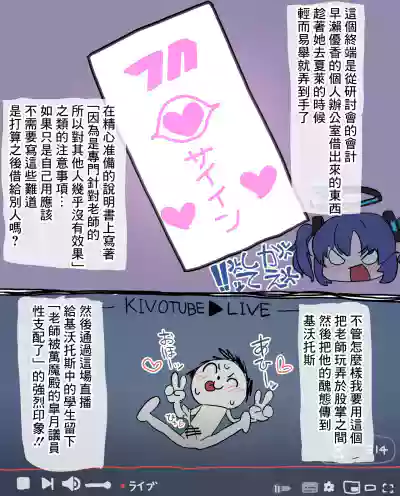 這個終端是從研討會的會計
早瀨優香的個人辦公室借出來的東西
趁著她去夏萊的時候
輕而易舉就弄到手了
在精心准備的說明書上寫著
「因為是專門針對老師的
所以對其他人幾乎沒有效果」
之類的注意事項…
如果只是自己用應該
不需要寫這些難道
是打算之後借給別人嗎?
サイイン
かえして!!
KIVOTUBE▶LIVE
不管怎麼樣我要用這個
把老師玩弄於股掌之間
然後把他的醜態傳到
基沃托斯
あひ〜♡
おほッ♡
然後通過這場直播
給基沃托斯中的學生留下
「老師被萬魔殿的皐月議員
性支配了」的強烈印象!!
314
ライブ